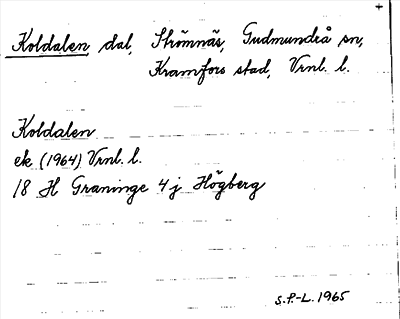 Koldalen, dal, Strömnäs, Gudmundrå sn,
Kramfors stad, Vrnl. l.
Koldalen
ek (1964) Vrnl. l.
18 H Graninge 4 j Högberg
S.P-L. 1965